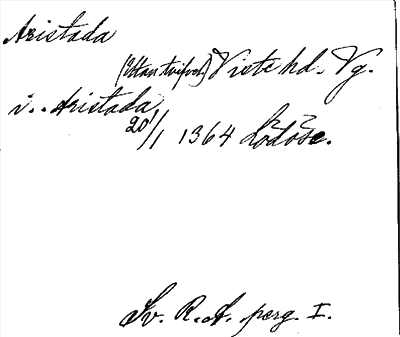 Aristada
(Utan tvifvel.) Viste hd. Vg.
i.. Aristada
20/1 1364 Lödöse.
Sv. R. A. perg. I.